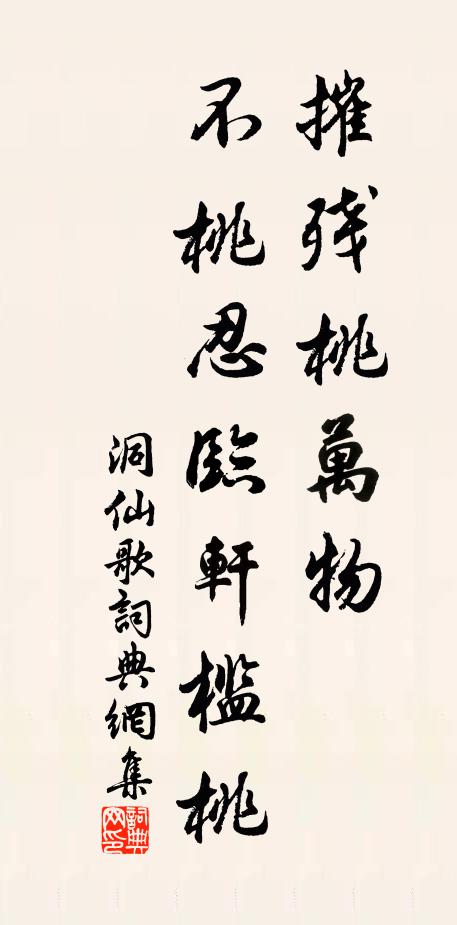 摧残桃萬物
不桃忍臨軒檻桃
洞仙歌詞典網集
詞典网印